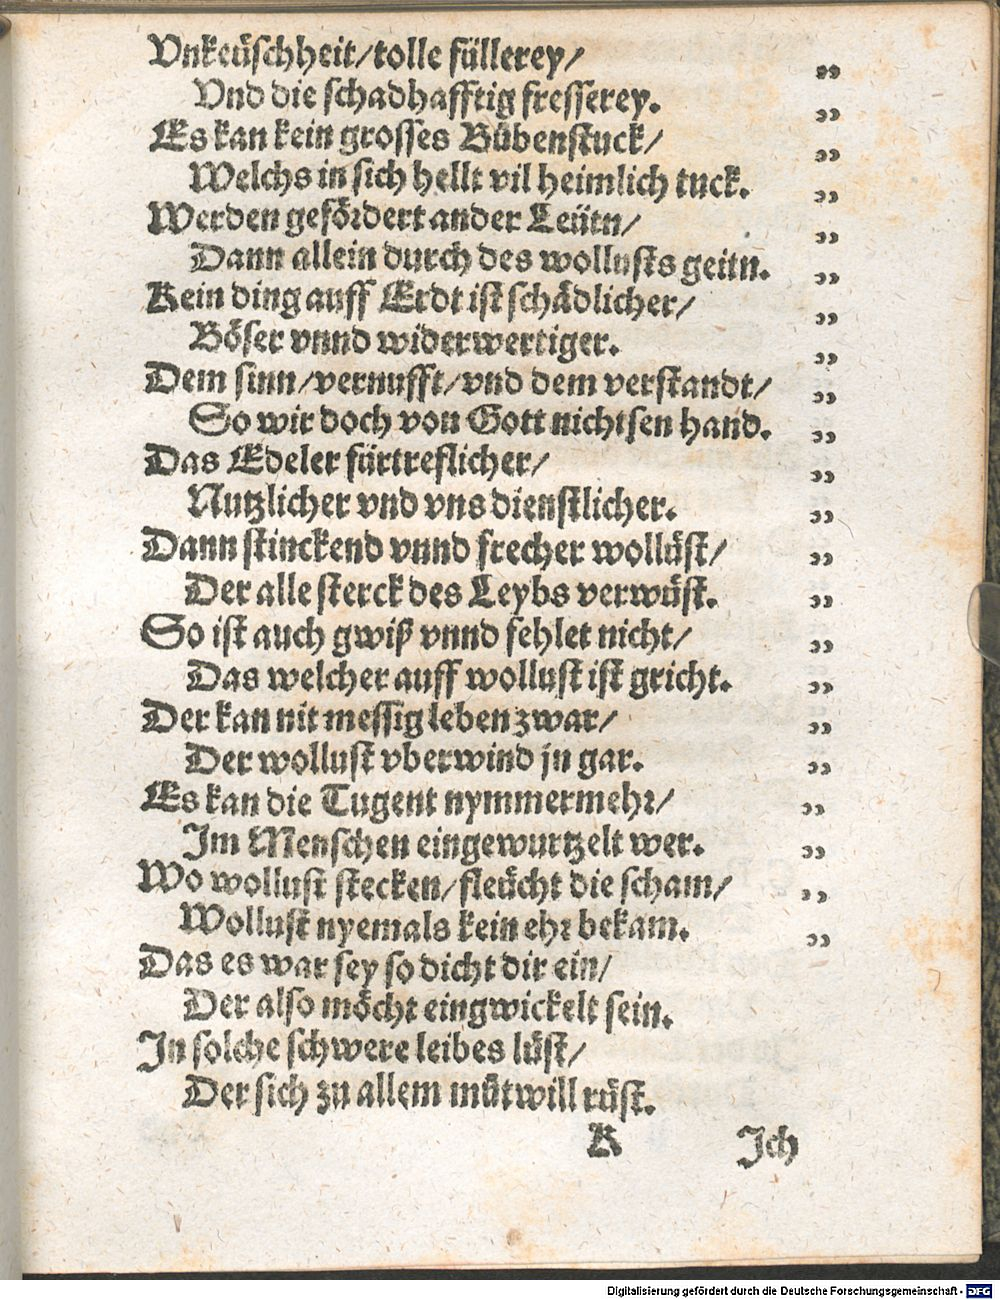 Vnkeüschheit/tolle füllerey/ „
Vnd die schadhafftig fresserey. „
Es kan kein grosses Bübenstuck/ „
Welchs in sich hellt vil heimlich tuck. „
Werden gefördert ander Leütn/ „
Dann allein durch des wollusts geitn. „
Kein ding auff Erdt ist schädlicher/ „
Böser vnnd widerwertiger. „
Dem sinn/vernufft/vnd dem verstandt/ „
So wir doch von Gott nichtsen hand. „
Das Edeler fürtreflicher/ „
Nutzlicher vnd vns dienstlicher. „
Dann stinckend vnnd frecher wollüst/ „
Der alle sterck des Leybs verwüst. „
So ist auch gwiß vnnd fehlet nicht/ „
Das welcher auff wollust ist gricht. „
Der kan nit messig leben zwar/ „
Der wollust vberwind jn gar. „
Es kan die Tugent nymmermehr/ „
Im Menschen eingewurtzelt wer. „
Wo wollust stecken/fleücht die scham/ „
Wollust nyemals kein ehr bekam. „
Das es war sey so dicht dir ein/
Der also möcht eingwickelt sein.
In solche schwere leibes lüst/
Der sich zu allem mütwill rüst.
K Ich
Digitalisierung gefördert durch die Deutsche Forschungsgemeinschaft - DFG